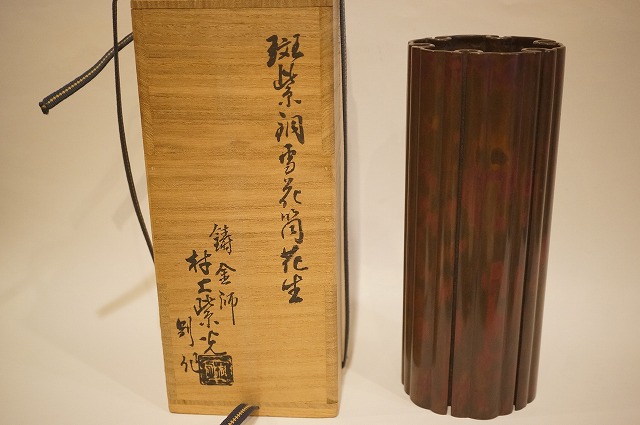 斑紫銅雪花筒花生
鋳金師
村上紫光
別作